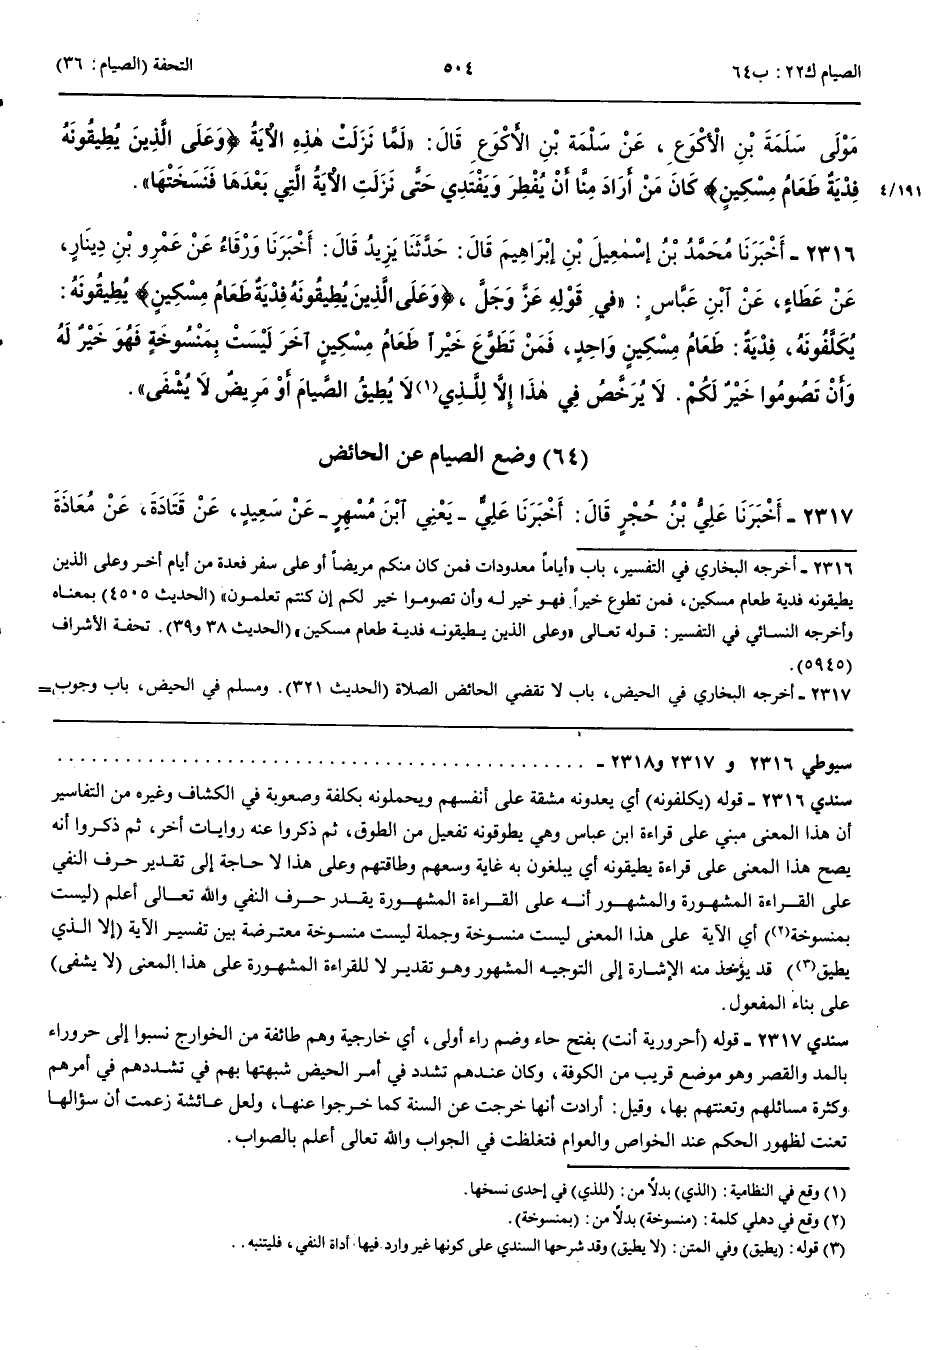 الصيام ك٢٢: ب٦٤
٥٠٤
التحفة (الصيام: ٣٦)
مَوْلَى سَلَمَةَ بْنِ الْأَكْوَعِ، عَنْ سَلَمَةَ بْنِ الْأَكْوَعِ قَالَ: «لَمَّا نَزَلَتْ هٰذِهِ الْآيَةُ ﴿وَعَلَى الَّذِينَ يُطِيقُونَهُ
فِدْيَةٌ طَعَامُ مِسْكِينٍ﴾ كَانَ مَنْ أَرَادَ مِنَّا أَنْ يُفْطِرَ وَيَفْتَدِي حَتَّى نَزَلَتِ الْآيَةُ الَّتِي بَعْدَهَا فَنَسَخَتْهَا».
٤/١٩١
٢٣١٦ - أَخْبَرَنَا مُحَمَّدُ بْنُ إِسْمٰعِيلَ بْنِ إِبْرَاهِيمَ قَالَ: حَدَّثَنَا يَزِيدُ قَالَ: أَخْبَرَنَا وَرْقَاءُ عَنْ عَمْرِو بْنِ دِينَارٍ،
عَنْ عَطَاءٍ، عَنْ ابْنِ عَبَّاسٍ: «فِي قَوْلِهِ عَزَّ وَجَلَّ، ﴿وَعَلَى الَّذِينَ يُطِيقُونَهُ فِدْيَةٌ طَعَامُ مِسْكِينٍ﴾ يُطِيقُونَهُ:
يُكَلَّفُونَهُ، فِدْيَةٌ: طَعَامُ مِسْكِينٍ وَاحِدٍ، فَمَنْ تَطَوَّعَ خَيْراً طَعَامُ مِسْكِينٍ آخَرَ لَيْسَتْ بِمَنْسُوخَةٍ فَهُوَ خَيْرٌ لَهُ
وَأَنْ تَصُومُوا خَيْرٌ لَكُمْ. لَا يُرَخَّصُ فِي هٰذَا إِلَّا لِلَّذِي(١) لَا يُطِيقُ الصِّيَامَ أَوْ مَرِيضٌ لَا يُشْفَى».
(٦٤) وضع الصيام عن الحائض
٢٣١٧ - أَخْبَرَنَا عَلِيُّ بْنُ حُجْرٍ قَالَ: أَخْبَرَنَا عَلِيٌّ - يَعْنِي ابْنَ مُسْهِرٍ - عَنْ سَعِيدٍ، عَنْ قَتَادَةَ، عَنْ مُعَاذَةَ
٢٣١٦ - أخرجه البخاري في التفسير، باب «أياماً معدودات فمن كان منكم مريضاً أو على سفر فعدة من أيام أخر وعلى الذين
يطيقونه فدية طعام مسكين، فمن تطوع خيراً فهو خير له وأن تصوموا خير لكم إن كنتم تعلمون» (الحديث ٤٥٠٥) بمعناه
وأخرجه النسائي في التفسير: قوله تعالى «وعلى الذين يطيقونه فدية طعام مسكين» (الحديث ٣٨ و٣٩). تحفة الأشراف
(٥٩٤٥).
٢٣١٧ - أخرجه البخاري في الحيض، باب لا تقضي الحائض الصلاة (الحديث ٣٢١). ومسلم في الحيض، باب وجوب =
سيوطي ٢٣١٦ و ٢٣١٧ و٢٣١٨ - . . . . . . . . . . . . . . . . . . . . . . . . . . . . . . . . . . . . . . . .
سندي ٢٣١٦ - قوله (يكلفونه) أي يعدونه مشقة على أنفسهم ويحملونه بكلفة وصعوبة في الكشاف وغيره من التفاسير
أن هذا المعنى مبني على قراءة ابن عباس وهي يطوقونه تفعيل من الطوق، ثم ذكروا عنه روايات أخر، ثم ذكروا أنه
يصح هذا المعنى على قراءة يطيقونه أي يبلغون به غاية وسعهم وطاقتهم وعلى هذا لا حاجة إلى تقدير حرف النفي
على القراءة المشهورة والمشهور أنه على القراءة المشهورة يقدر حرف النفي والله تعالى أعلم (ليست
بمنسوخة(٢)) أي الآية على هذا المعنى ليست منسوخة وجملة ليست منسوخة معترضة بين تفسير الآية (إلا الذي
يطيق(٣)) قد يؤخذ منه الإشارة إلى التوجيه المشهور وهو تقدير لا للقراءة المشهورة على هذا المعنى (لا يشفى)
على بناء المفعول.
سندي ٢٣١٧ - قوله (أحرورية أنت) بفتح حاء وضم راء أولى، أي خارجية وهم طائفة من الخوارج نسبوا إلى حروراء
بالمد والقصر وهو موضع قريب من الكوفة، وكان عندهم تشدد في أمر الحيض شبهتها بهم في تشددهم في أمرهم
وكثرة مسائلهم وتعنتهم بها، وقيل: أرادت أنها خرجت عن السنة كما خرجوا عنها، ولعل عائشة زعمت أن سؤالها
تعنت لظهور الحكم عند الخواص والعوام فتغلظت في الجواب والله تعالى أعلم بالصواب.
(١) وقع في النظامية: (الذي) بدلاً من: (للذي) في إحدى نسخها.
(٢) وقع في دهلي كلمة: (منسوخة) بدلاً من: (بمنسوخة).
(٣) قوله: (يطيق) وفي المتن: (لا يطيق) وقد شرحها السندي على كونها غير وارد فيها أداة النفي، فليتنبه..